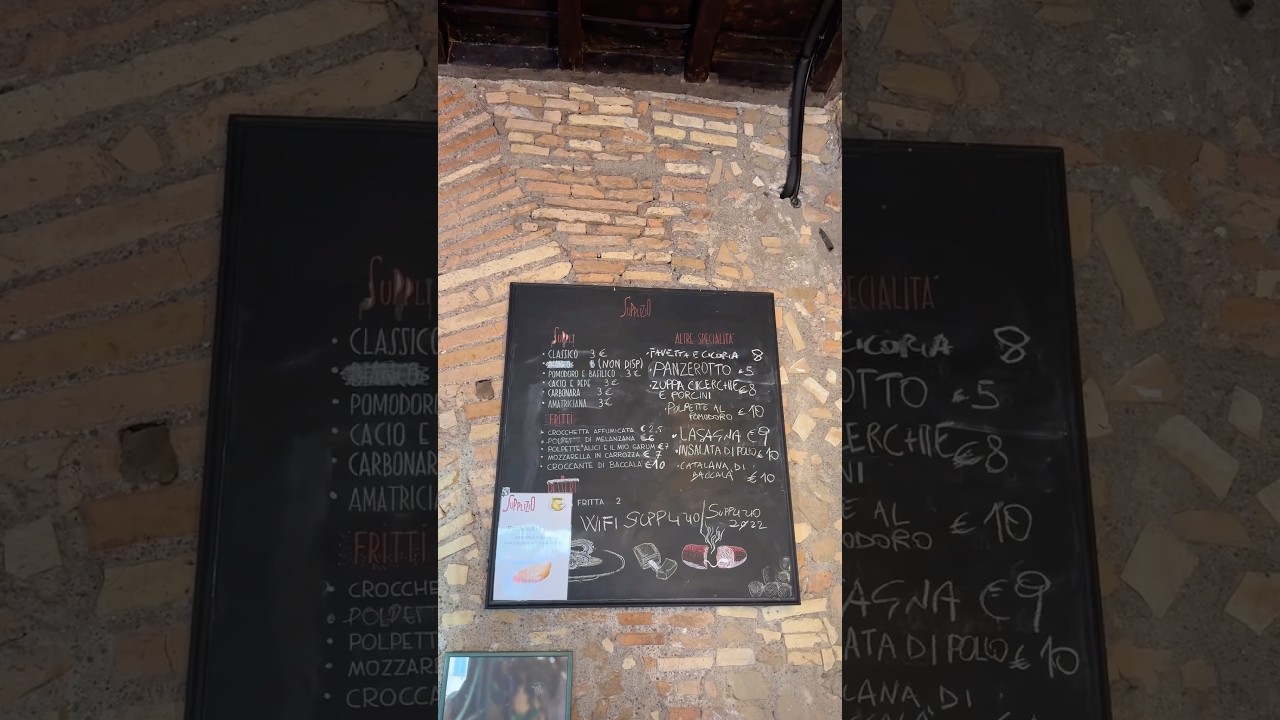 SUPPLIZIO
SUPPLÌ
• CLASSICO 3 €
(NON DISP)
• POMODORO E BASILICO 3 €
• CACIO E PEPE 3 €
• CARBONARA 3 €
• AMATRICIANA 3 €
FRITTI
• CROCCHETTA AFFUMICATA € 2,5
• POLPETTE DI MELANZANA €6
• POLPETTE ALICI E IL MIO GARUM €7
• MOZZARELLA IN CARROZZA € 7
• CROCCANTE DI BACCALÀ €10
FRITTA 2
ALTRE SPECIALITÀ
• FAVETTA E CICORIA 8
• PANZEROTTO €5
• ZUPPA CICERCHIE €8
E PORCINI
• POLPETTE AL
POMODORO € 10
• LASAGNA €9
• INSALATA DI POLLO € 10
• CATALANA DI
BACCALÀ € 10
WIFI SUPPLIZIO / SUPPLIZIO
2022
SUPPLIZIO